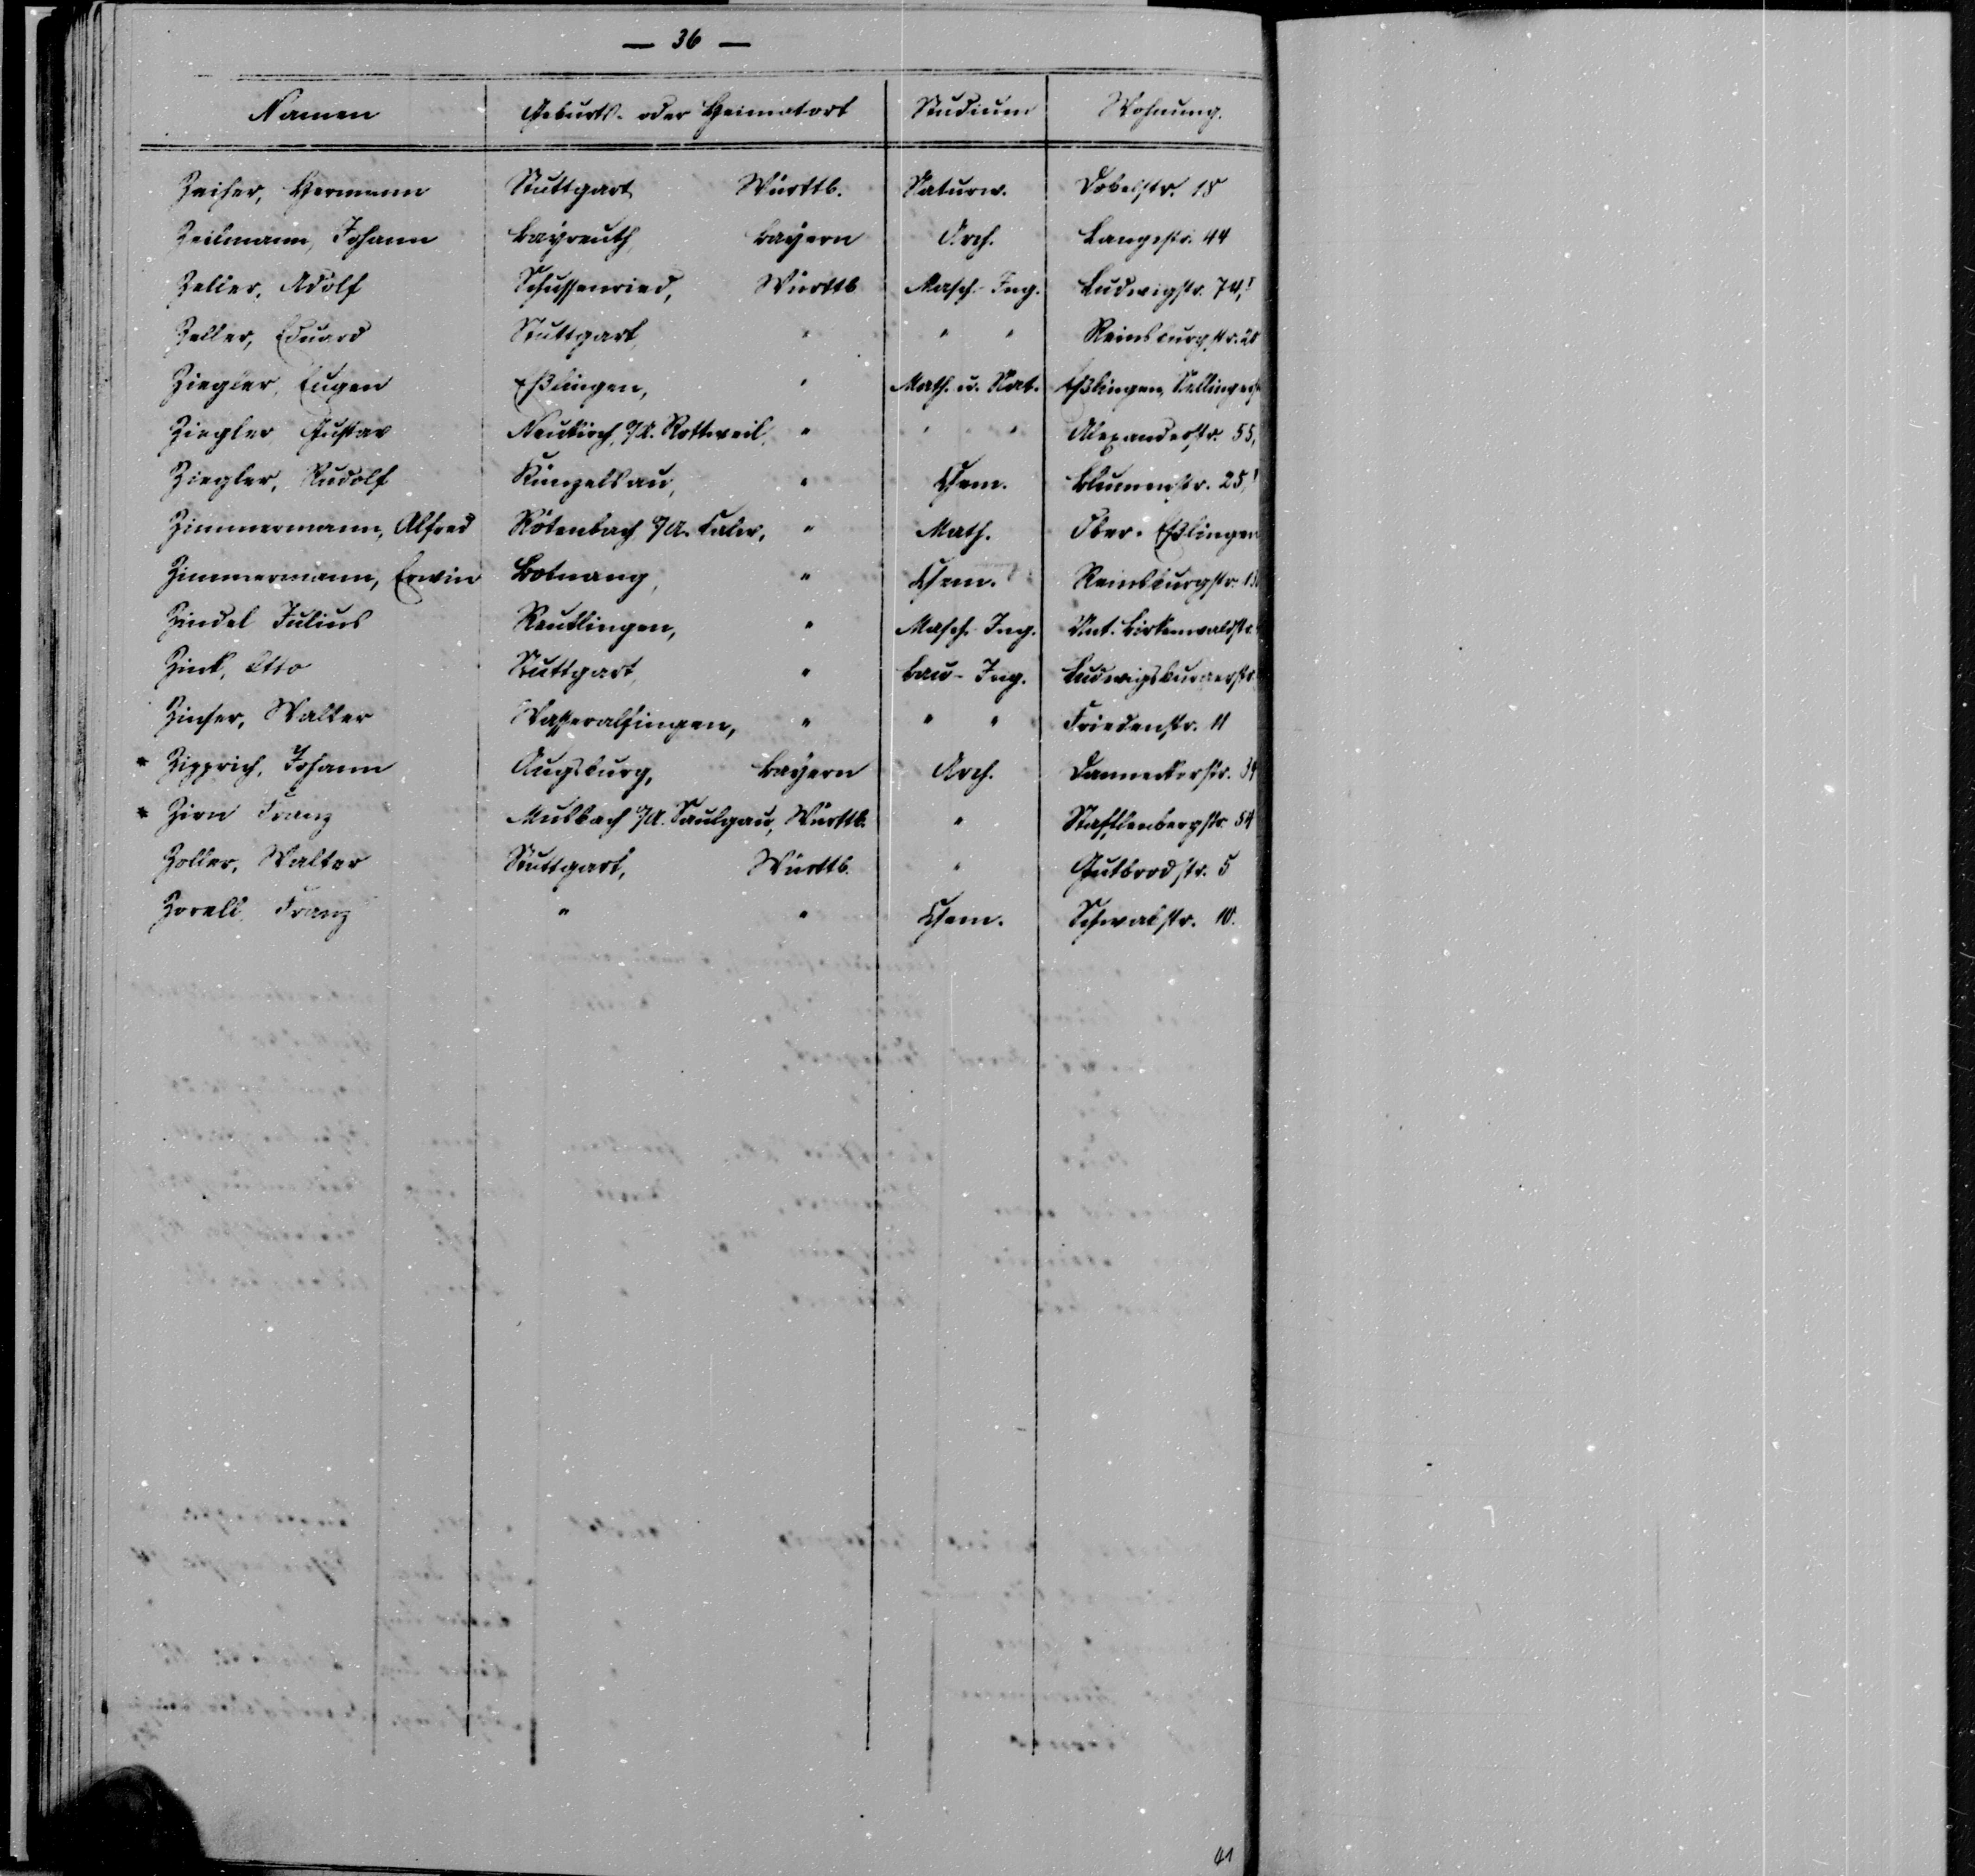 — 36 —
Namen Geburts- oder Heimatort Studium Wohnung.
Zaiser, Hermann Stuttgart Württb. Naturw. Dobelstr. 18
Zeilmann, Johann Bayreuth Bayern Arch. Langestr. 44
Zeller, Adolf Schussenried, Württb Masch. Ing. Ludwigstr. 74,I
Zeller, Eduard Stuttgart, " " " Reinsburgstr. 20
Ziegler, Eugen Eßlingen, " Math. u. Nat. Eßlingen,
Ziegler Gustav Neukirch, O/A. Rottweil, " " " Alexanderstr. 55,
Ziegler, Rudolf Künzelsau, " Chem. Blumenstr. 25,I
Zimmermann, Alfred Rötenbach O/A. Calw, " Math. Ober-Eßlingen
Zimmermann, Erwin Botnang, " Chem. Reinsburgstr.
Zindel Julius Reutlingen, " Masch. Ing. Unt. Birkenwaldstr.
Zink, Otto Stuttgart, " Bau-Ing. Ludwigsburgerstr.
Zinser, Walter Wasseralfingen, " " " Friedenstr. 11
* Zipprich, Johann Augsburg, Bayern Arch. Danneckerstr. 34
* Zirn Franz Musbach O/A. Saulgau, Württb. " Stafflenbergstr. 54
Zoller, Walter Stuttgart, Württb. " Gutbrodstr. 5
Zorell Franz " " Chem. Schwabstr. 10.
41